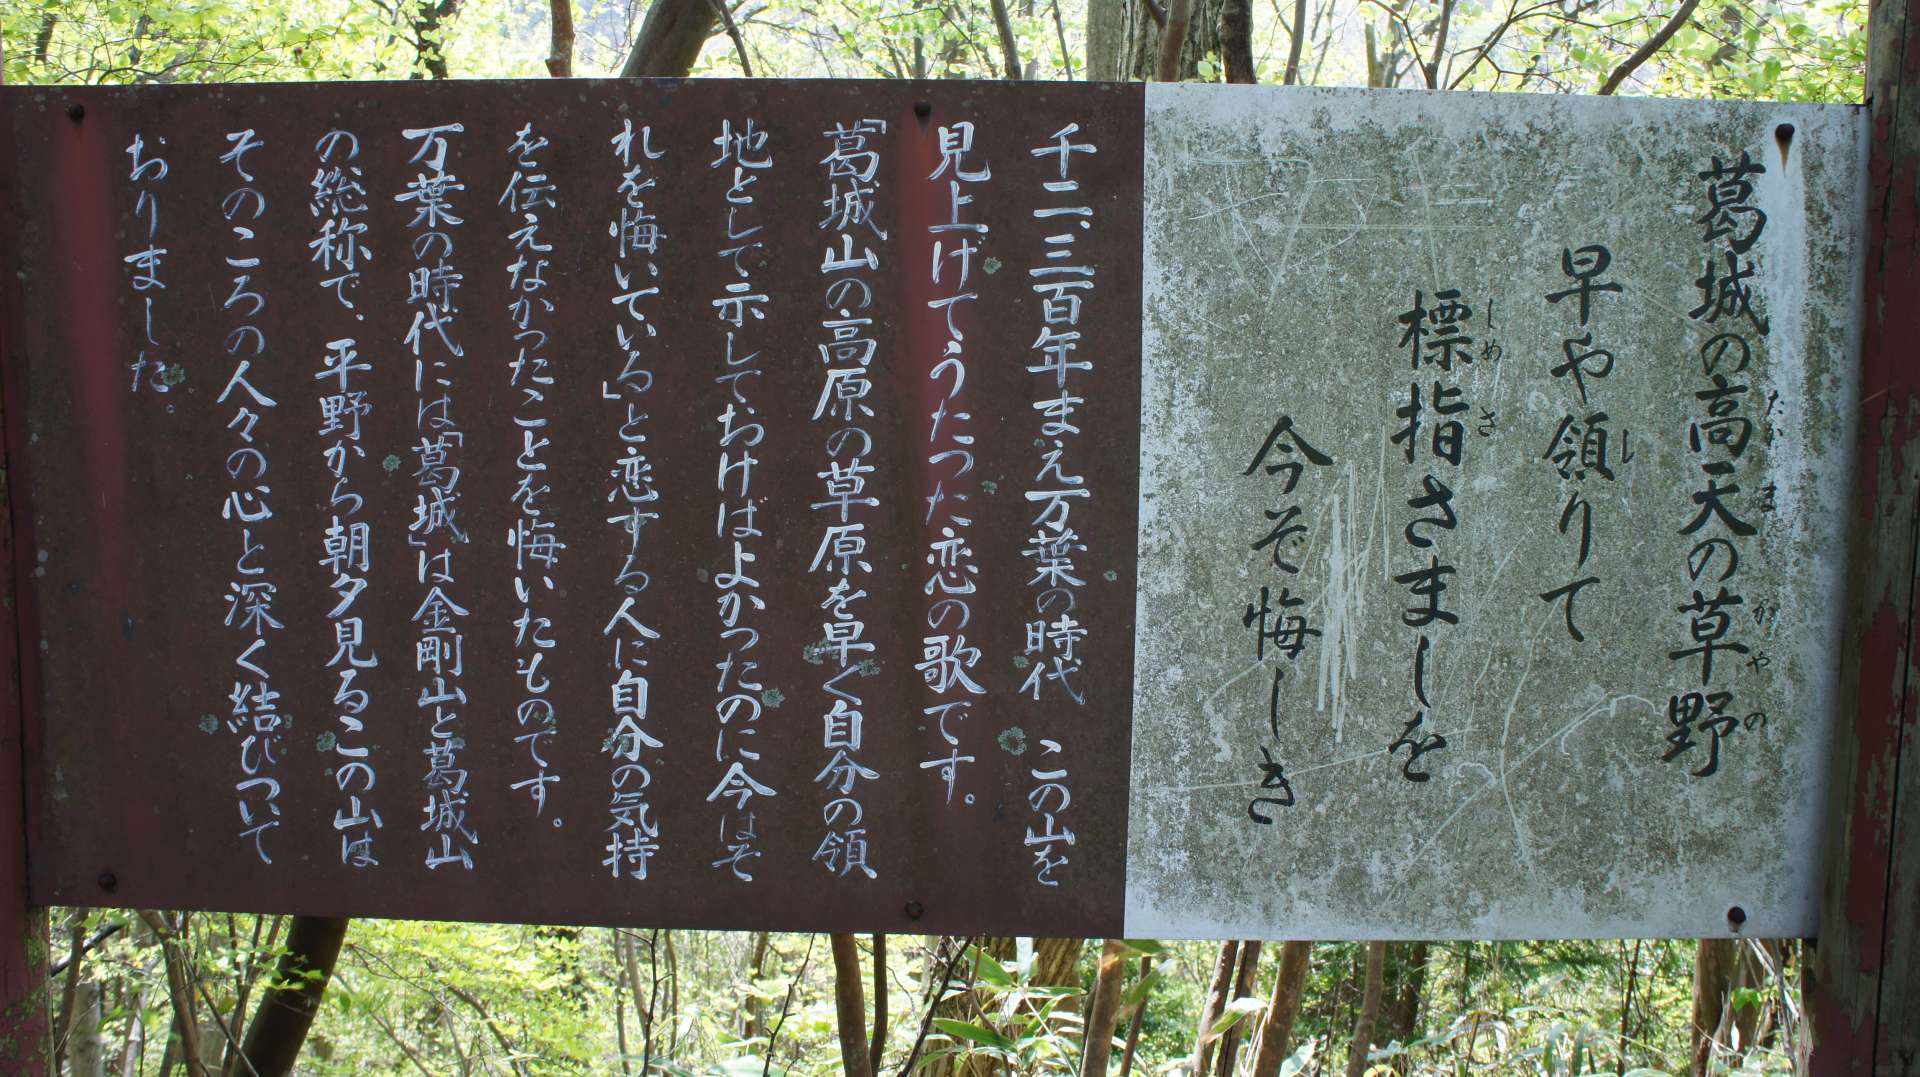 葛城の高天の草野
たかまがやの
早や領りて
し
標指さましを
しめさ
今ぞ悔しき
千二、三百年まえ万葉の時代 この山を
見上げてうたった恋の歌です。
「葛城山の高原の草原を早く自分の領
地として示しておけばよかったのに今はそ
れを悔いている」と恋する人に自分の気持
を伝えなかったことを悔いたものです。
万葉の時代には「葛城」は金剛山と葛城山
の総称で、平野から朝夕見るこの山は
そのころの人々の心と深く結びついて
おりました。